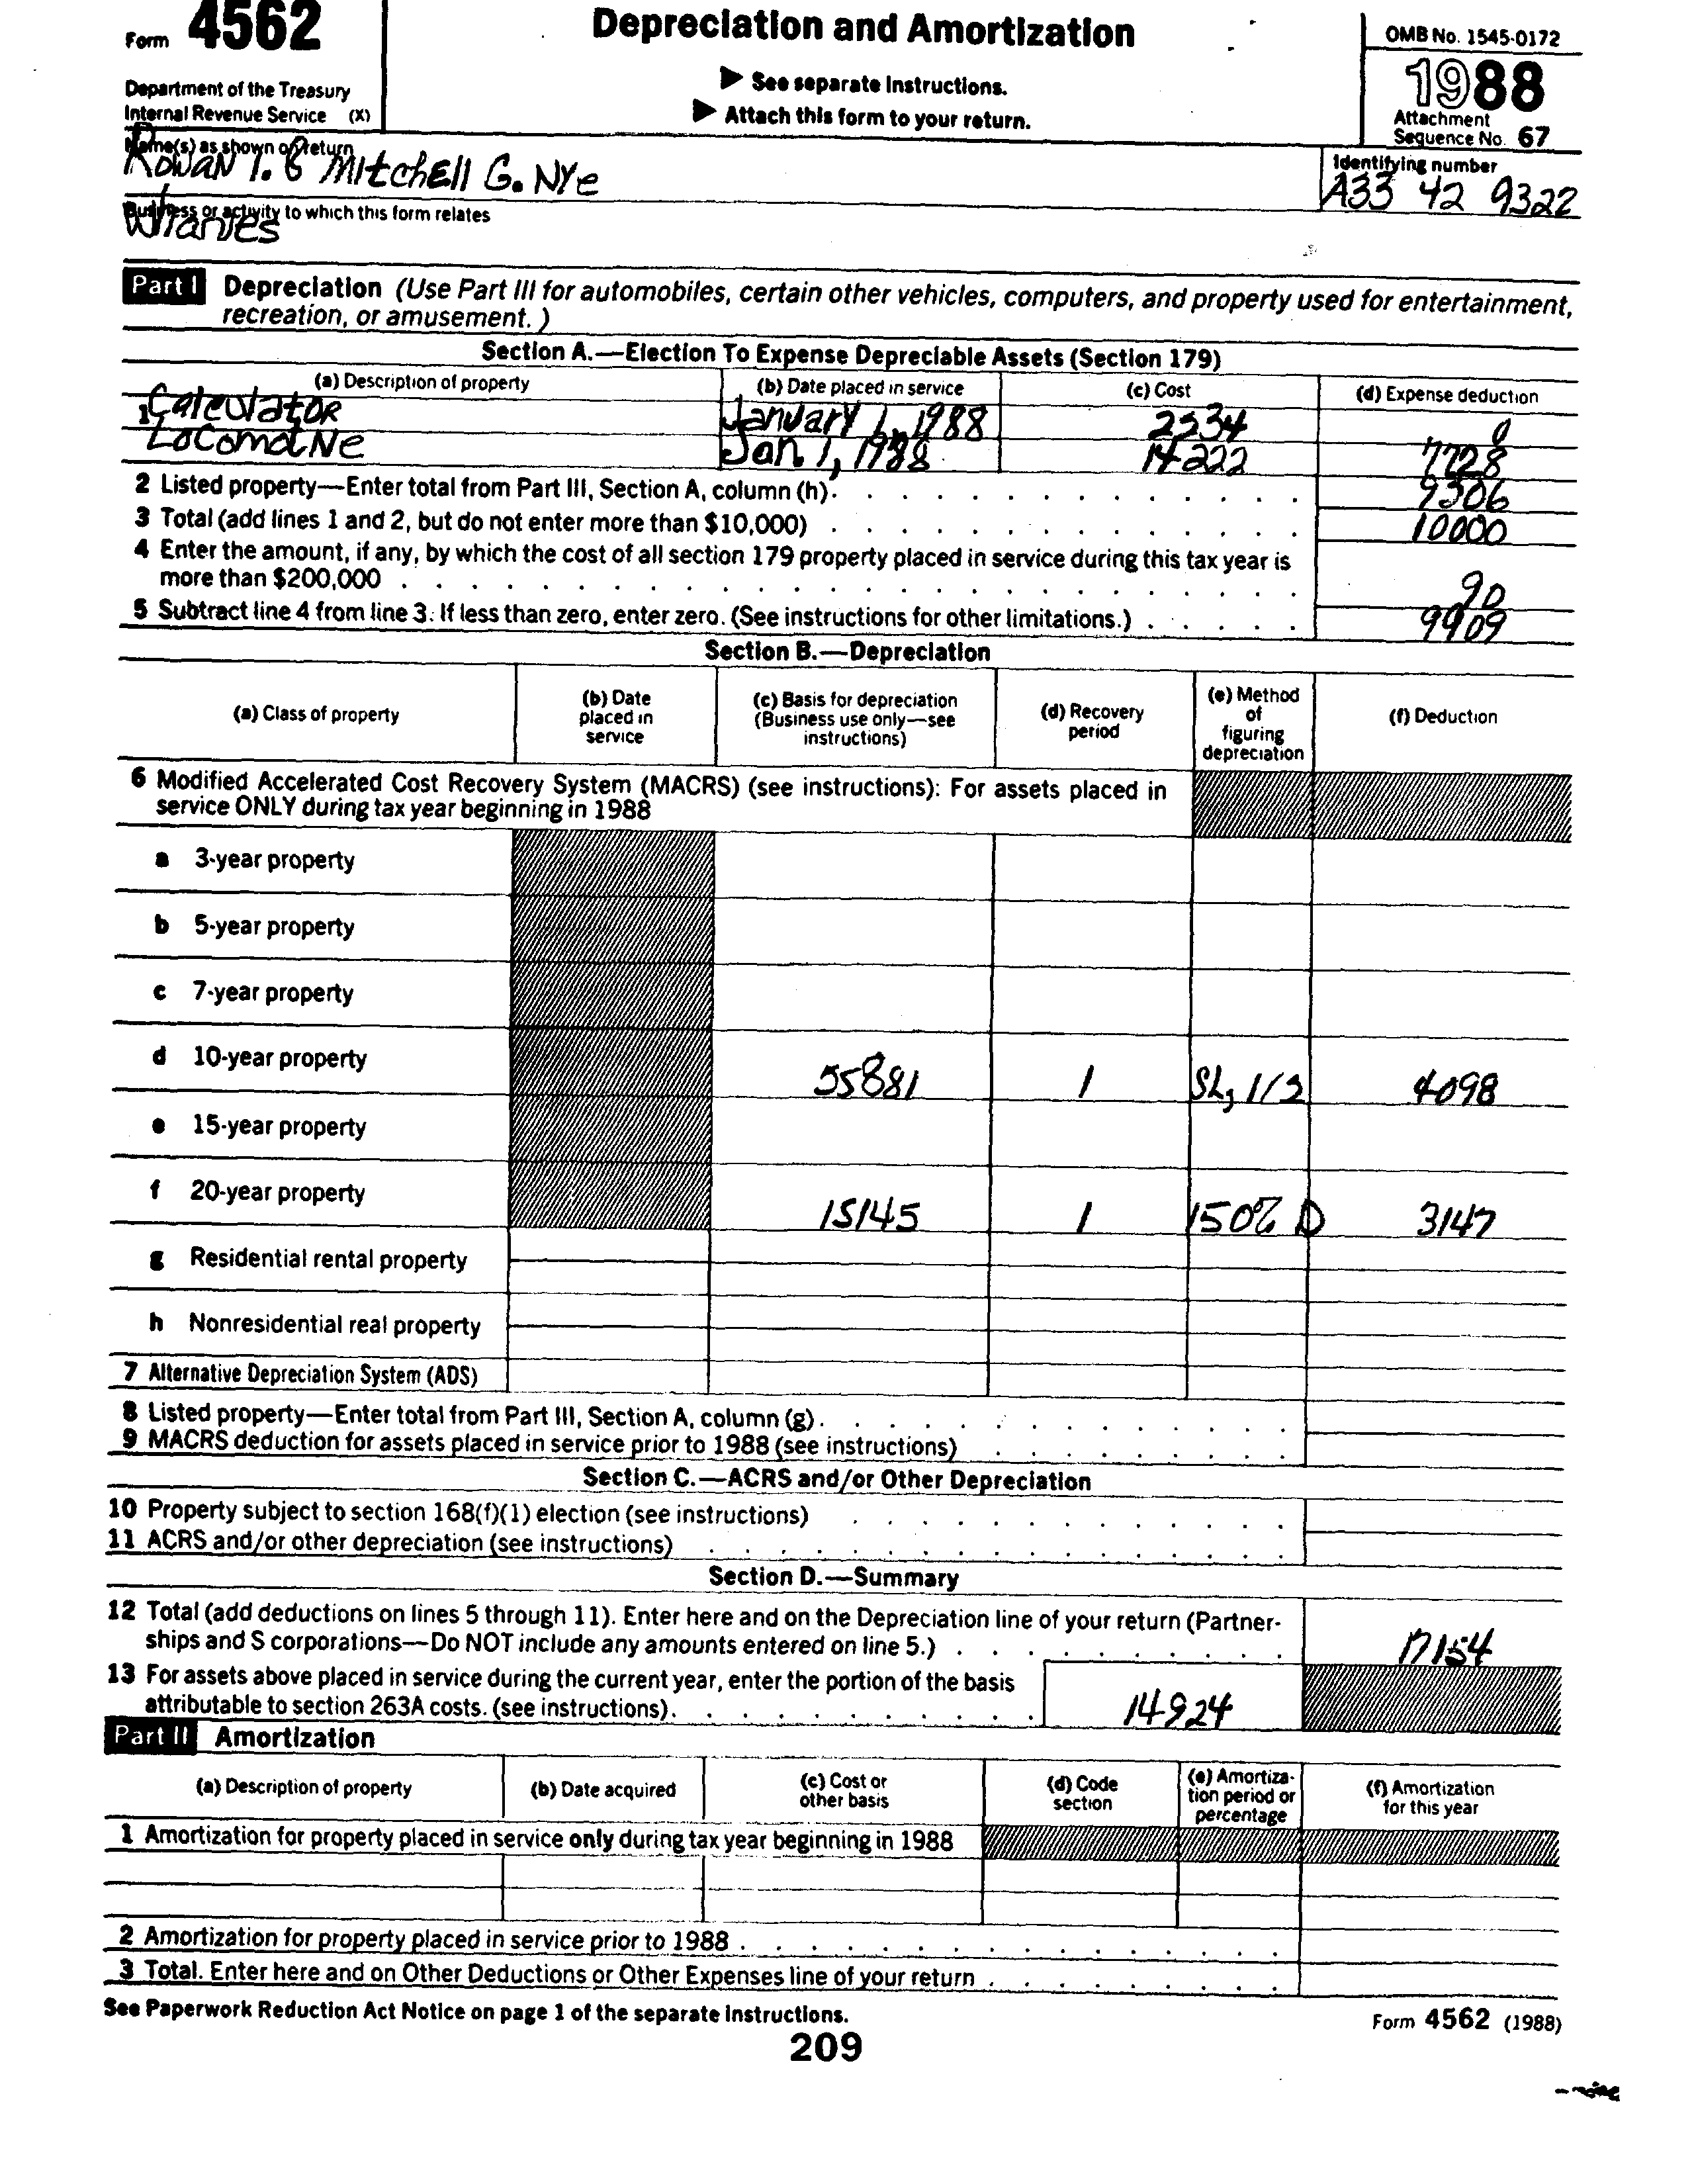 Form 4562
Department of the Treasury
Internal Revenue Service (X)
Depreciation and Amortization
▶ See separate Instructions.
▶ Attach this form to your return.
OMB No. 1545-0172
1988
Attachment
Sequence No. 67
Name(s) as shown on return
Rowan I. & Mitchell G. Nye
Identifying number
A33 42 9322
Business or activity to which this form relates
Wharves
Part I Depreciation (Use Part III for automobiles, certain other vehicles, computers, and property used for entertainment,
recreation, or amusement.)
Section A.—Election To Expense Depreciable Assets (Section 179)
(a) Description of property (b) Date placed in service (c) Cost (d) Expense deduction
1 Calculator January 1, 1988 2534 0
Locomotive Jan 1, 1988 14222 7728
2 Listed property—Enter total from Part III, Section A, column (h). 9306
3 Total (add lines 1 and 2, but do not enter more than $10,000) 10000
4 Enter the amount, if any, by which the cost of all section 179 property placed in service during this tax year is
more than $200,000 90
5 Subtract line 4 from line 3. If less than zero, enter zero. (See instructions for other limitations.) 9909
Section B.—Depreciation
(a) Class of property (b) Date placed in service (c) Basis for depreciation (Business use only—see instructions) (d) Recovery period (e) Method of figuring depreciation (f) Deduction
6 Modified Accelerated Cost Recovery System (MACRS) (see instructions): For assets placed in
service ONLY during tax year beginning in 1988
a 3-year property
b 5-year property
c 7-year property
d 10-year property 55881 1 SL, 1/2 4098
e 15-year property
f 20-year property 15145 1 150% D 3147
g Residential rental property
h Nonresidential real property
7 Alternative Depreciation System (ADS)
8 Listed property—Enter total from Part III, Section A, column (g).
9 MACRS deduction for assets placed in service prior to 1988 (see instructions)
Section C.—ACRS and/or Other Depreciation
10 Property subject to section 168(f)(1) election (see instructions)
11 ACRS and/or other depreciation (see instructions)
Section D.—Summary
12 Total (add deductions on lines 5 through 11). Enter here and on the Depreciation line of your return (Partner-
ships and S corporations—Do NOT include any amounts entered on line 5.) 17154
13 For assets above placed in service during the current year, enter the portion of the basis
attributable to section 263A costs. (see instructions). 14924
Part II Amortization
(a) Description of property (b) Date acquired (c) Cost or other basis (d) Code section (e) Amortiza-tion period or percentage (f) Amortization for this year
1 Amortization for property placed in service only during tax year beginning in 1988
2 Amortization for property placed in service prior to 1988
3 Total. Enter here and on Other Deductions or Other Expenses line of your return
See Paperwork Reduction Act Notice on page 1 of the separate instructions.
Form 4562 (1988)
209